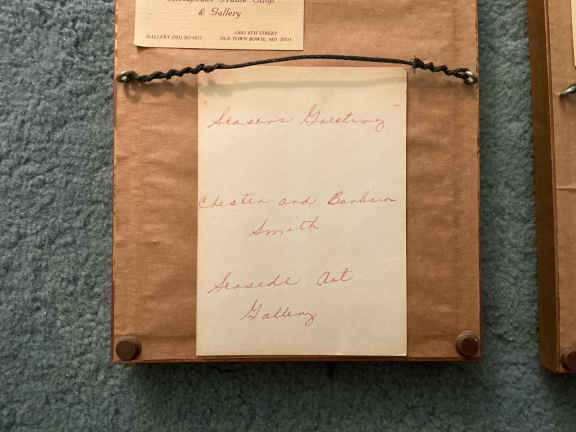 Frame Shop
& Gallery
GALLERY (301)
OLD TOWN BOWIE, MD
Seasons Greetings
Chester and Barbara
Smith
Seaside Art
Gallery